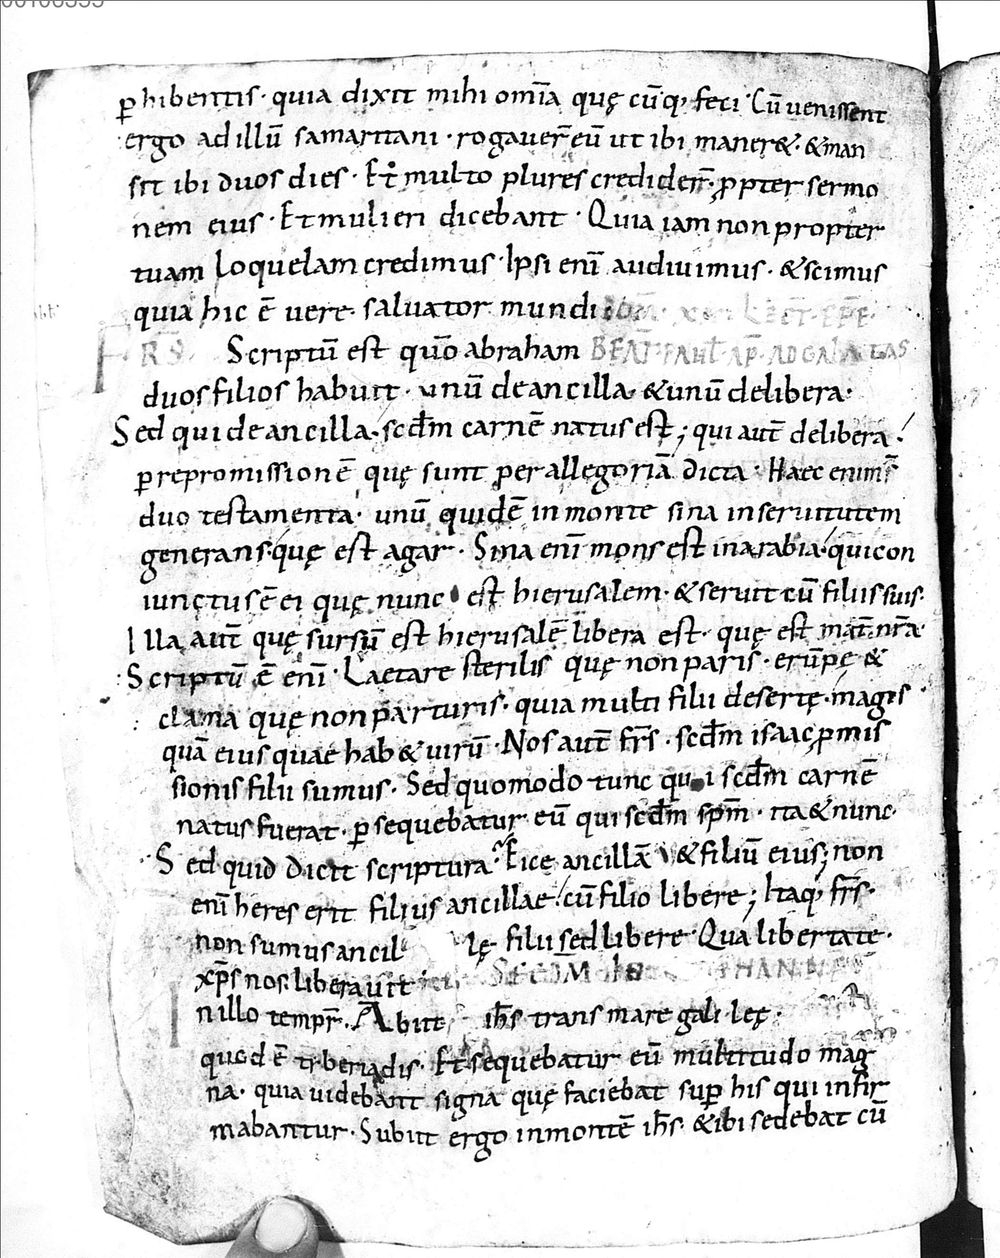 ꝑhibentis · quia dixit mihi om̄ia quę cūq; feci · Cū venissent
ergo ad illū samaritani · rogauer̄ eū ut ibi maner& · & man
sit ibi duos dies · Et multo plures credider̄ · ꝓpter sermo
nem eius · Et mulieri dicebant · Quia iam non propter
tuam loquelam credimus · Ipsi enī audiuimus · & scimus
quia hic ē vere · saluator mundi
FRS Scriptū est quō abraham BEATI PAVLI AP AD GALATAS
duos filios habuit · unū de ancilla · & unū de libera ·
Sed qui de ancilla · scdm̄ carnē natus est ; qui aut̄ de libera ·
ꝑ repromissionē · quę sunt per allegoriā dicta · Haec enim s̄
duo testamenta · unū quidē in monte sina in seruitutem
generans · quę est agar · Sina enī mons est in arabia · qui con
iunctus ē ei quę nunc est hierusalem · & seruit cū filiis suis ·
Illa aut̄ quę sursū est hierusalē libera est · quę est mat̄ nr̄a ·
Scriptū ē enī · Laetare sterilis quę non paris · erūpe &
clama quę non parturis · quia multi filii desertę · magis
quā eius quae hab& uirū · Nos aut̄ frs̄ · scdm̄ isaac ꝓmis
sionis filii sumus · Sed quomodo tunc qui scdm̄ carnē
natus fuerat · ꝑsequebatur eū qui scdm̄ spm̄ · ita & nunc ·
Sed quid dicit scriptura · Eice ancillā & filiū eius ; non
enī heres erit filius ancillae · cū filio liberę ; Itaq; frs̄ ·
non sumus ancil lę filii sed liberę · Qua libertate ·
xp̄s nos liberauit IOHANNEM
In illo tempr̄ · Abiit ih̄s trans mare gali leę ·
quod ē tiberiadis · Et sequebatur eū multitudo mag
na · quia uidebant signa quę faciebat suꝑ his qui infir
mabantur · Subiit ergo in montē ih̄s · & ibi sedebat cū